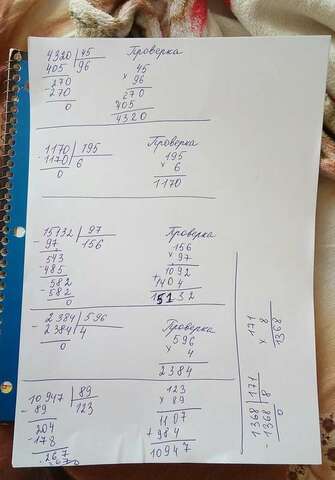 4320 | 45 Проверка
405 96 45
270 × 96
270 270
0 405
4320
1170 | 195 Проверка
1170 6 195
0 × 6
1170
15132 | 97 Проверка
- 97 156 156
543 × 97
- 485 1092
582 + 1404
- 582 15132
0
- 2384 | 596 Проверка
2384 4 596
0 × 4
2384
10947 | 89 123
- 89 123 × 89
204 1107
- 178 + 984
267 10947
267
0
171
× 8
1368
1368 | 171
- 1368 8
0